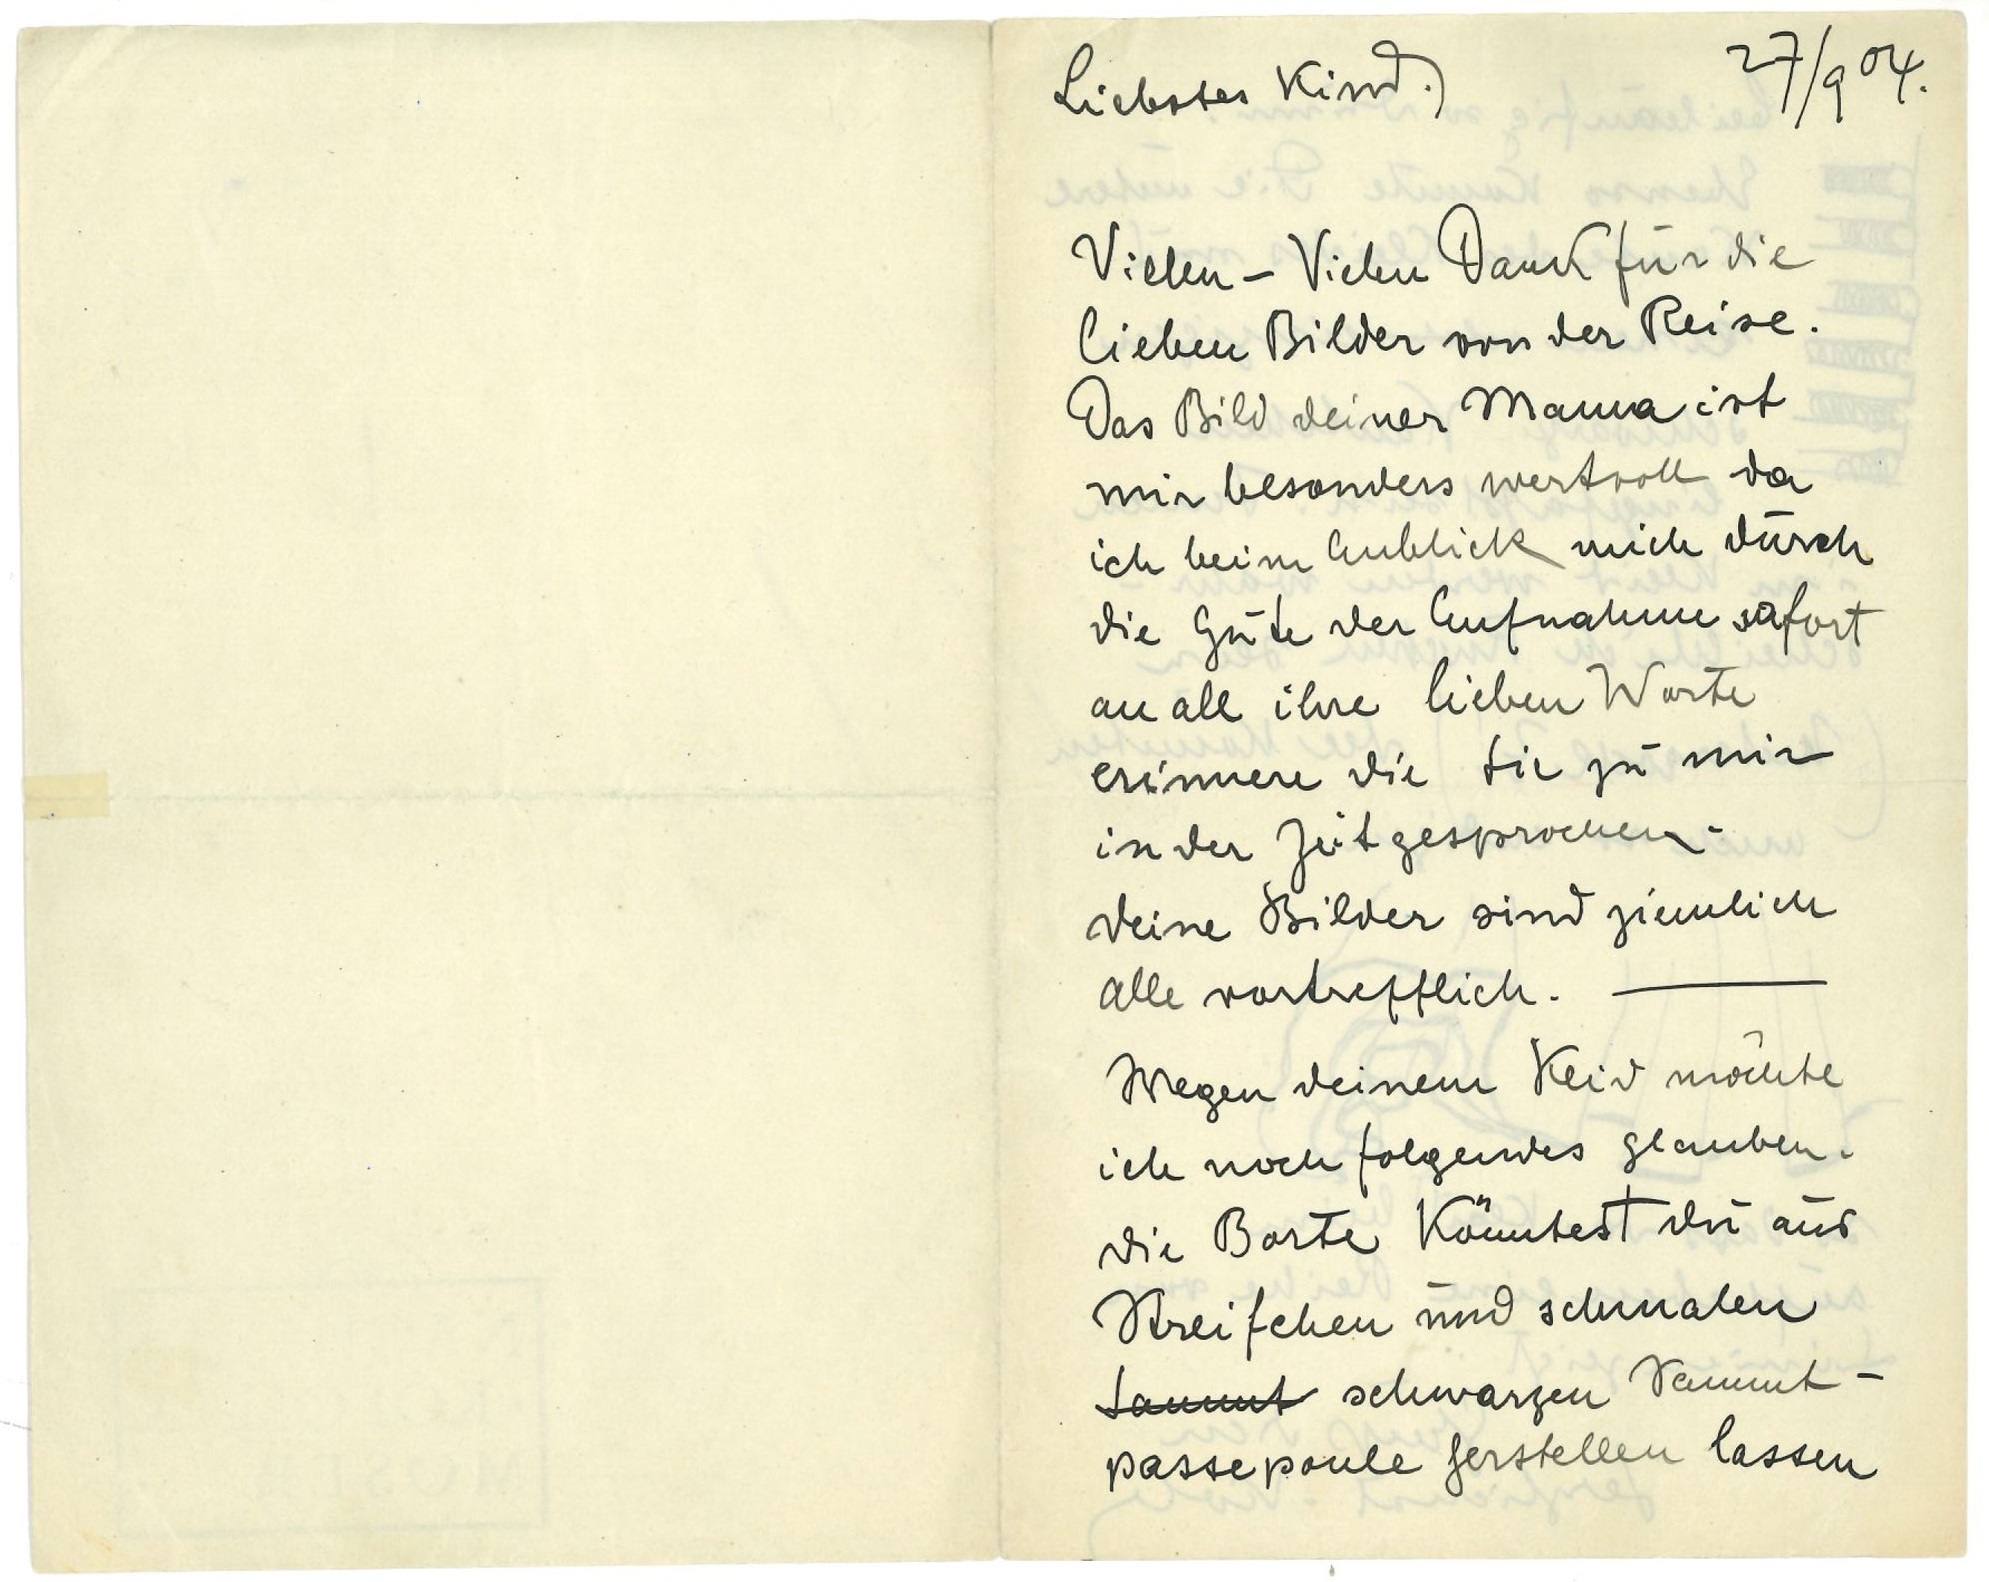 Liebstes Kind.) 27/9 04.
Vielen – Vielen Dank für die
lieben Bilder von der Reise.
Das Bild deiner Mama ist
mir besonders wertvoll da
ich beim Anblick mich durch
die Güte der Aufnahme sofort
an all ihre lieben Worte
erinnere die sie zu mir
in der Zeit gesprochen.
deine Bilder sind ziemlich
alle vortrefflich. —
Wegen deinem Kleid möchte
ich noch folgendes glauben.
die Borte Könntest du aus
Streifchen und schmalen
sammt schwarzen Sammt-
passepoule herstellen lassen